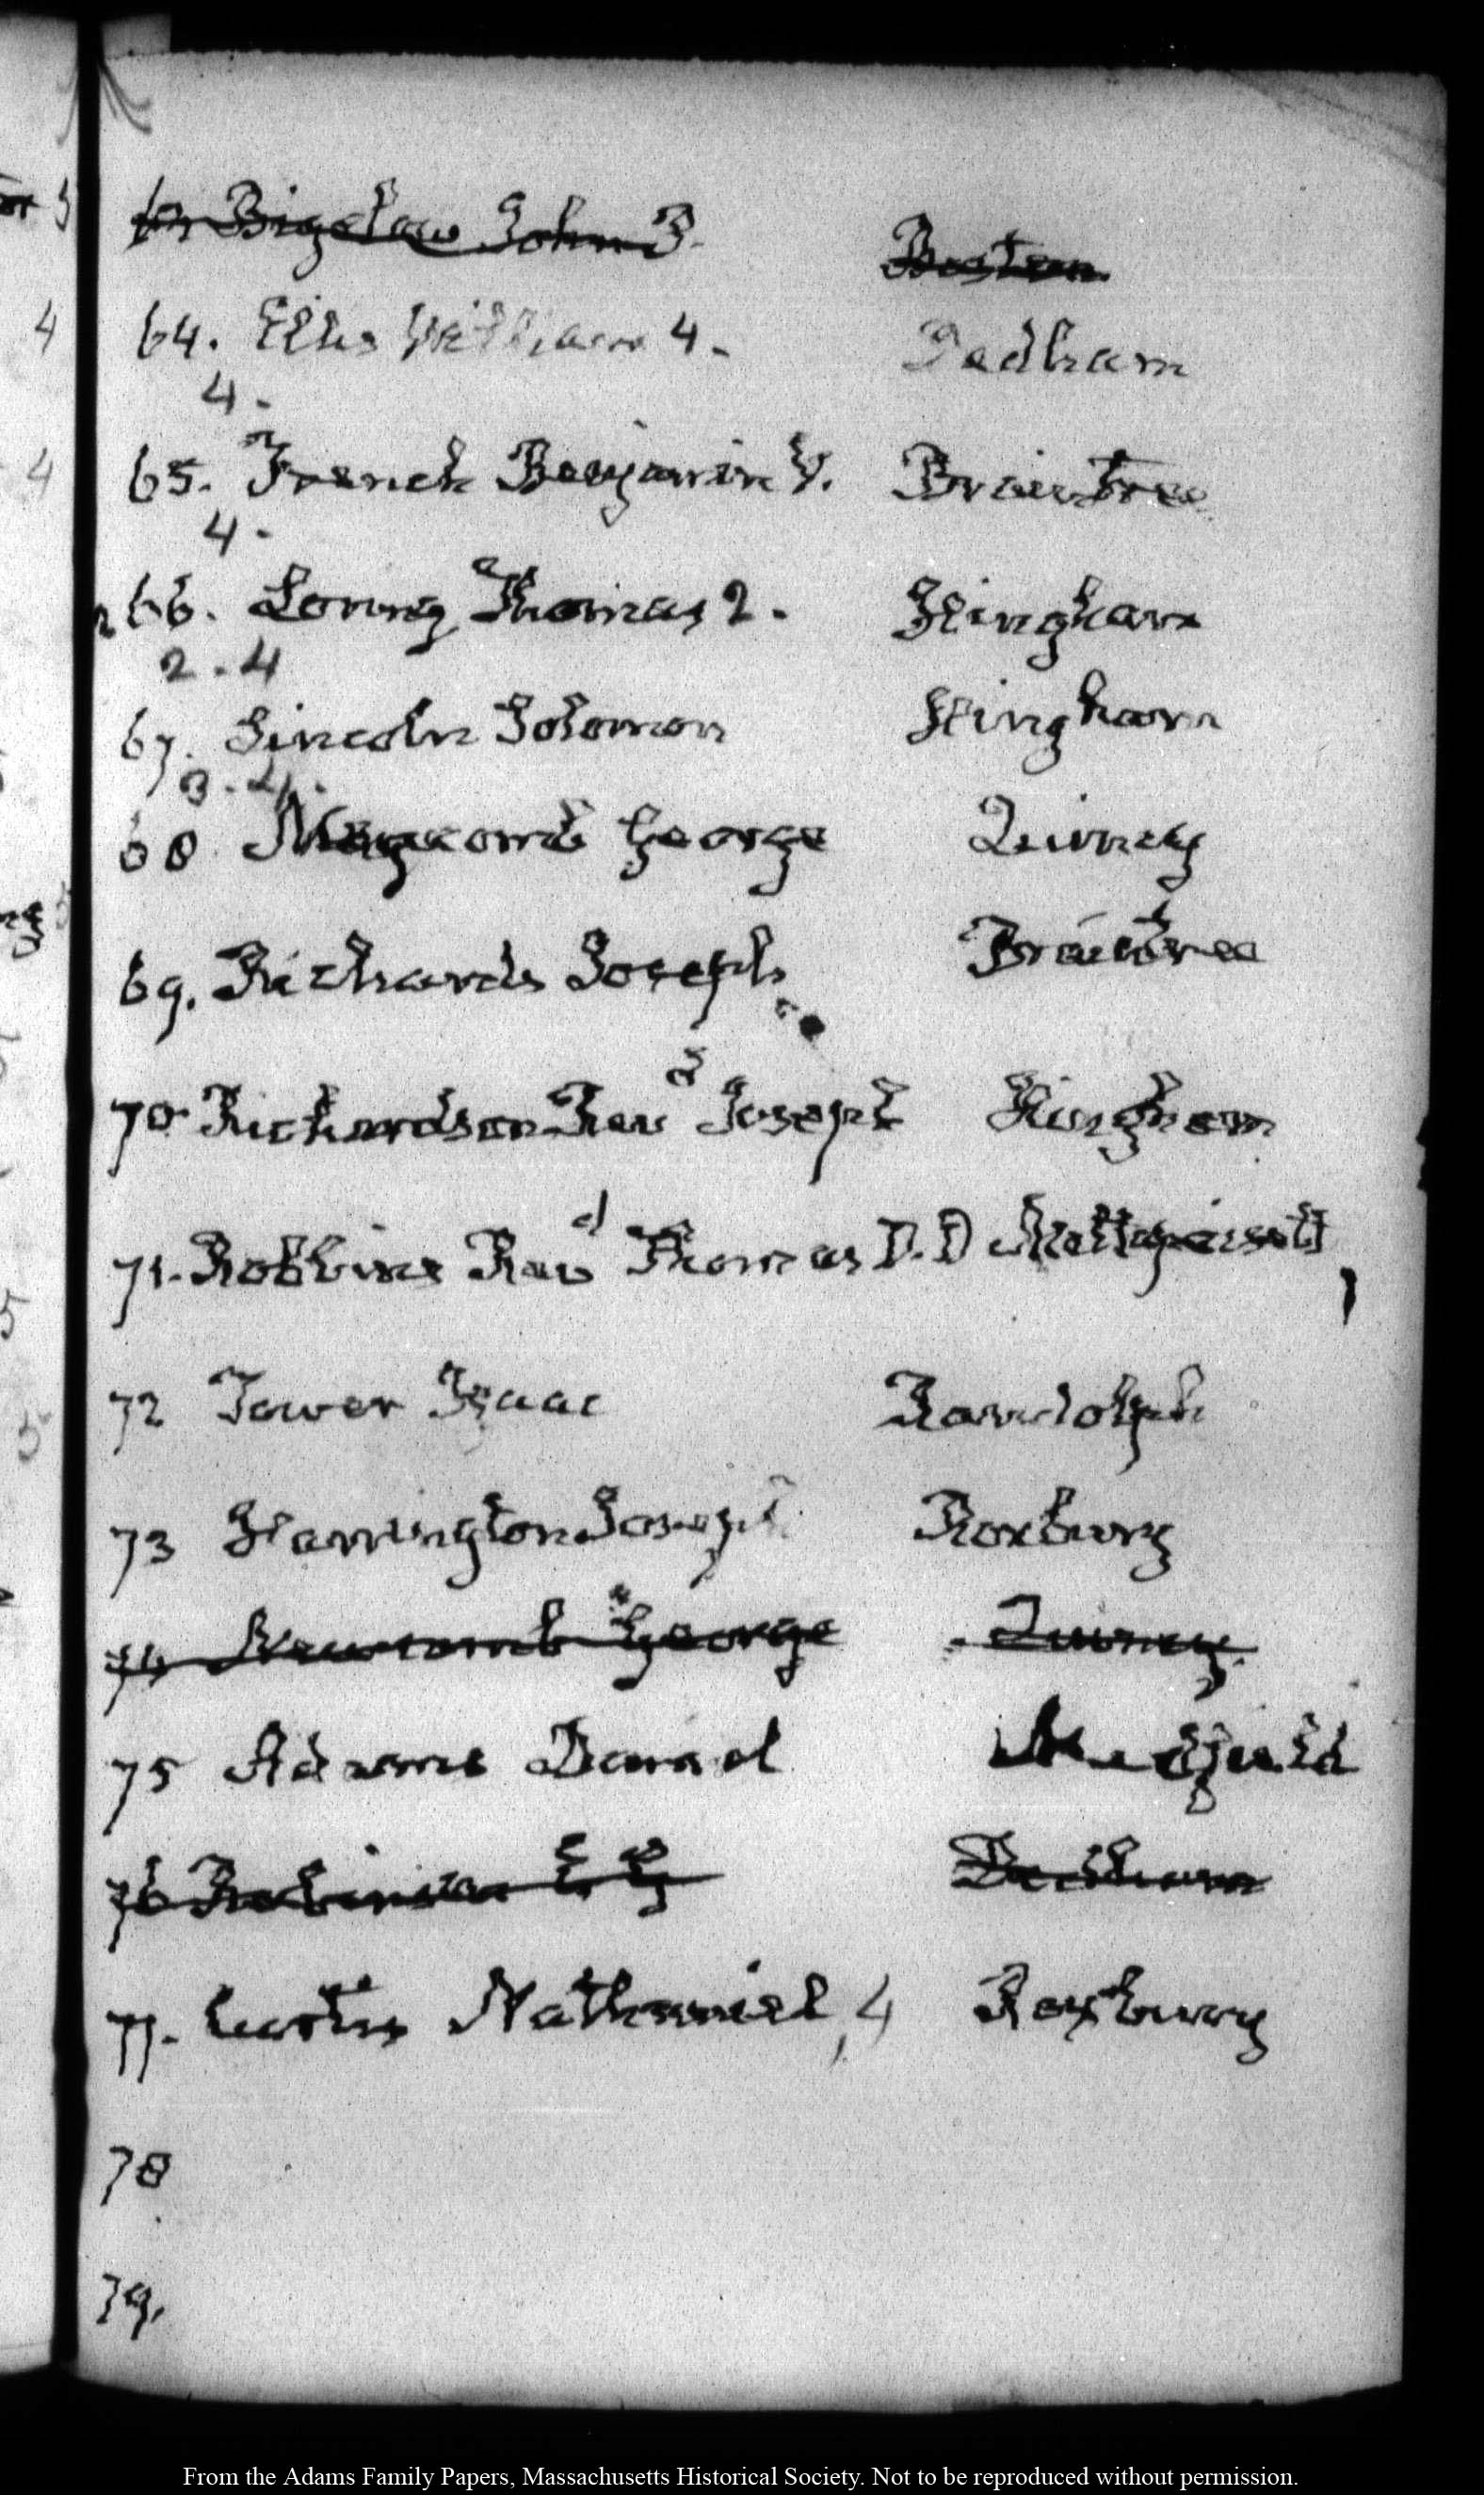 63 Bigelow John P. Boston
64. Ellis William 4. Dedham
4.
65. French Benjamin V. Braintree
4.
66. Loring Thomas 2. Hingham
2.4
67. Lincoln Solomon Hingham
3.4.
68 Newcomb George Quincy
69. Richards Joseph Braintree
70 Richardson Revd Joseph Hingham
71. Robbins Revd Thomas D.D Mattapoisett
72 Tower Isaac Randolph
73 Harrington Joseph Roxbury
74 Newcomb George Quincy.
75 Adams Daniel Medfield
76 Robinson Dedham
77. Curtis Nathaniel, 4 Roxbury
78
79.
From the Adams Family Papers, Massachusetts Historical Society. Not to be reproduced without permission.